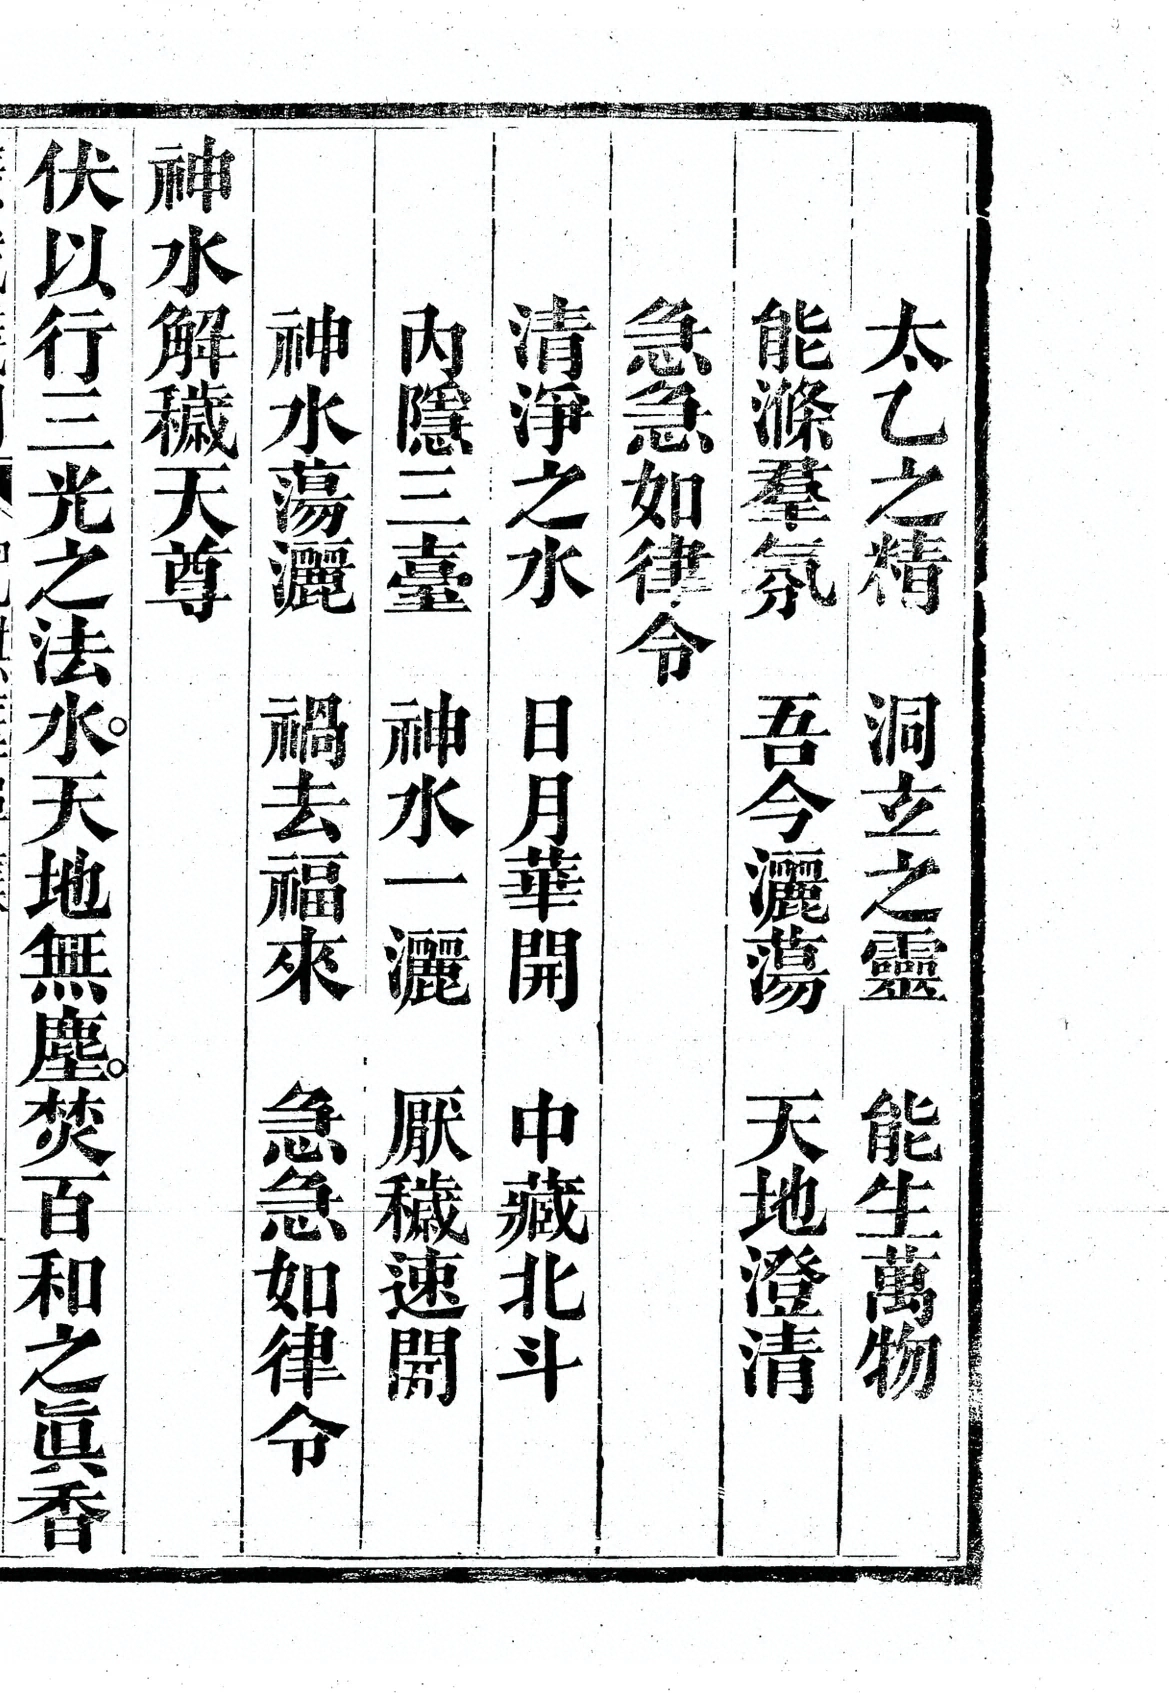 太乙之精　洞立之靈　能生萬物
能滌羣氛　吾今灑蕩　天地澄清
急急如律令
清淨之水　日月華開　中藏北斗
內隱三臺　神水一灑　厭穢速開
神水蕩灑　禍去福來　急急如律令
神水解穢天尊
伏以行三光之法水。天地無塵。焚百和之眞香